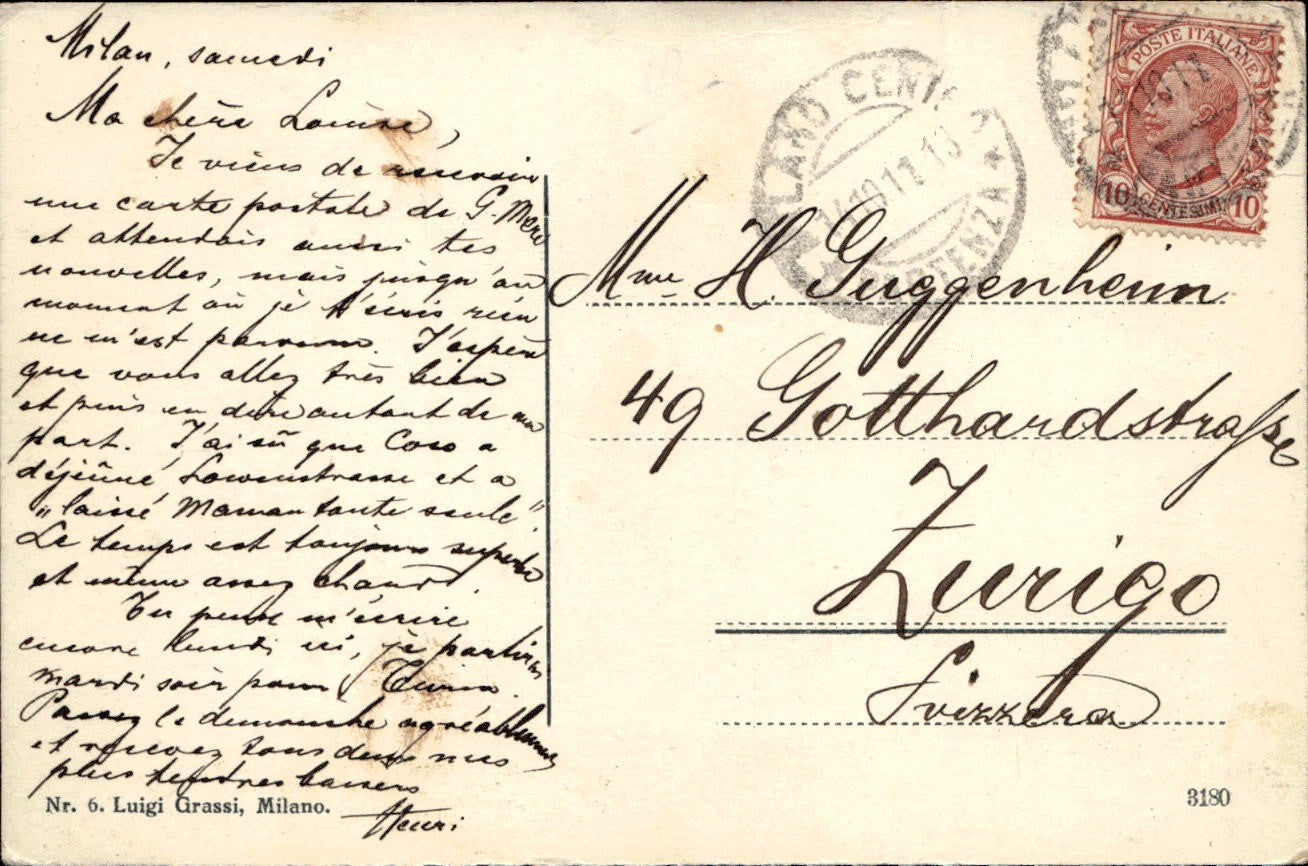 Milan, samedi
Ma chère Louise,
Je viens de recevoir
une carte postale de G. Mère
et attendais aussi tes
nouvelles, mais jusqu'au
moment où je t'écris rien
ne m'est parvenu. J'espère
que vous allez très bien
et puis en dire autant de ma
part. J'ai sû que Coco a
déjeûné Lowenstrasse et a
„laissé Maman toute seule".
Le temps est toujours superbe
et même assez chaud.
Tu peux m'écrire
encore lundi ici, je partirai
mardi soir pour Turin.
Passez le dimanche agréablement
et recevez tous deux mes
plus tendres baisers
Henri
Nr. 6. Luigi Grassi, Milano.
POSTE ITALIANE
10 CENTESIMI 10
MILANO CENTRO
14 10 11 - 13
PARTENZA
Mme H. Guggenheim
49 Gotthardstraße
Zurigo
Svizzera
3180